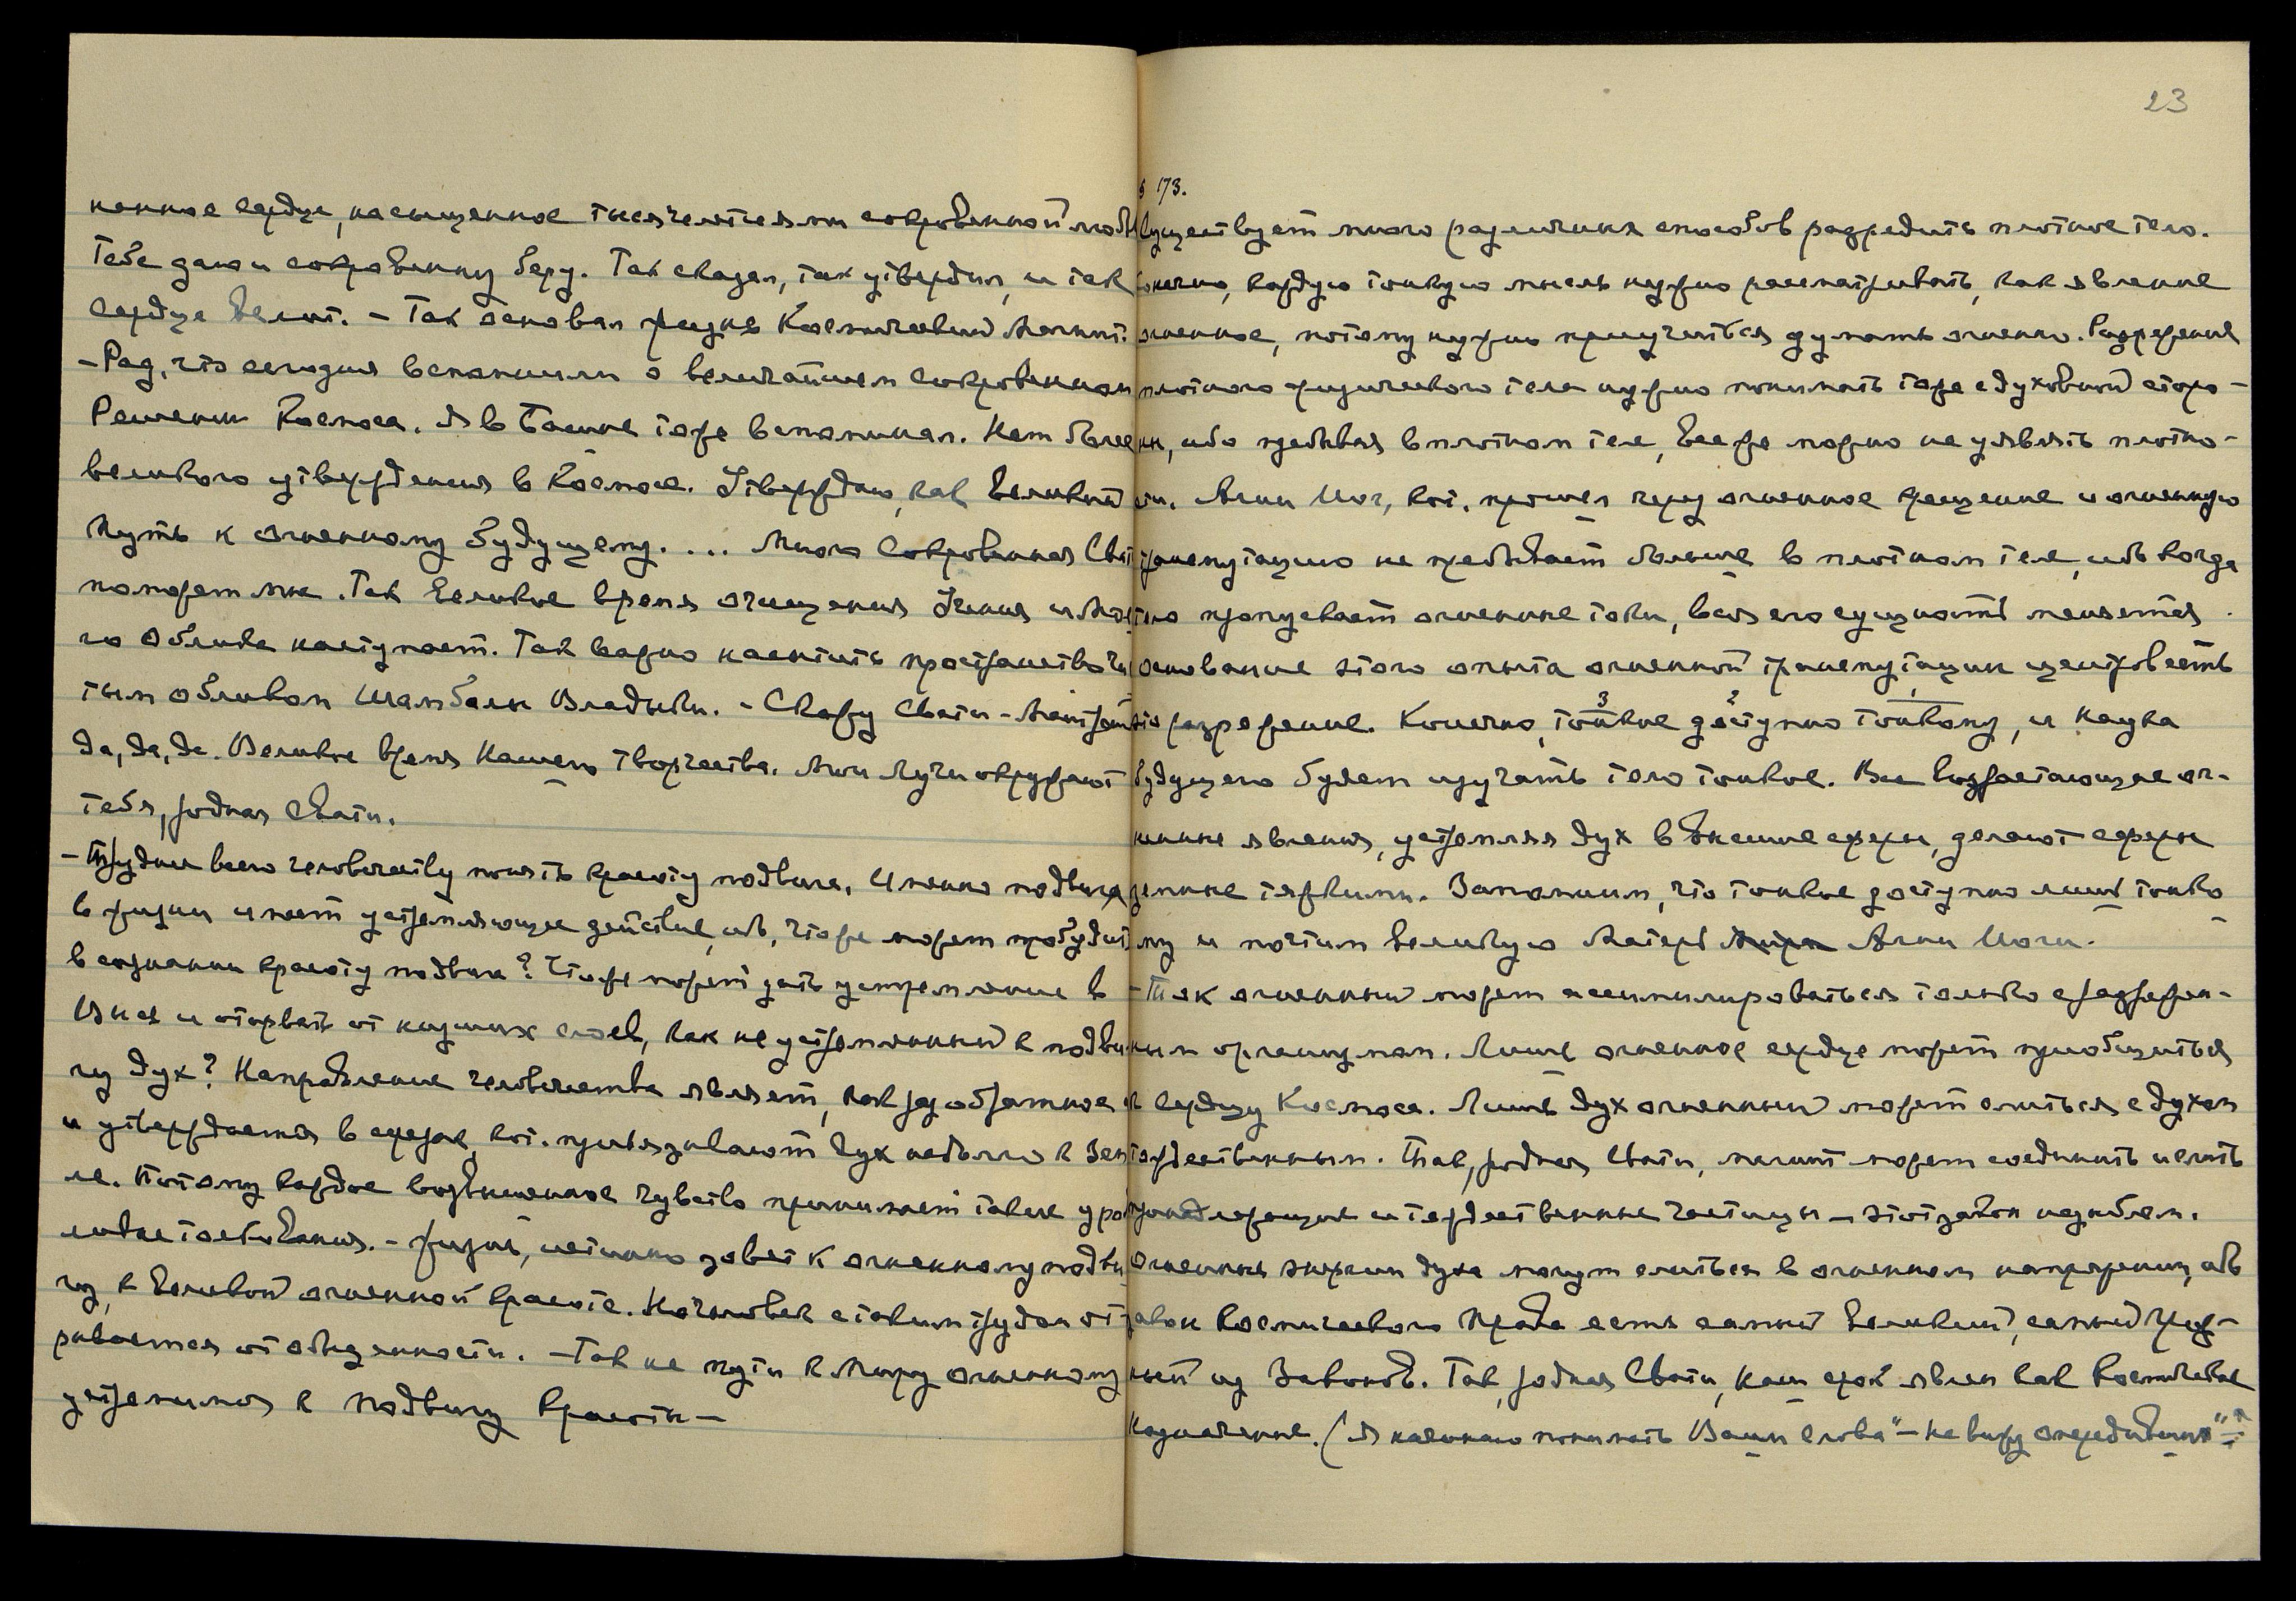 ненное сердце, насыщенное тысячелетиями сокровенной любви
Тебе даю и сокровенну беру. Так сказал, так утвердил, и так
сердце Велит. – Так основал жизнь Космический Магнит.
– Рад, что сегодня вспомнили о величайшем сокровенном
Решении Космоса. Я в Башне тоже вспоминал. Нет более
великого утверждения в Космосе. Утверждаю, как Великий
Путь к огненному будущему. ... Много Сокровенная Свати
поможет мне. Так Великое время очищения Учения и Мое
го Облика наступает. Так важно насытить пространство чис
тым обликом Шамбалы Владыки. – Скажу Свати –
Да, да, да. Великое время Нашего творчества. Мои Лучи окружают
тебя, родная Свати.
– Труднее всего человечеству понять красоту подвига. Именно подвиг
в жизни имеет устремляющее действие, ибо, что же может пробудить
в сознании красоту подвига? Что же может дать устремление в
Инея и оторвать от низших слоев, как не устремленный к подви
гу дух? Направление человечества являет, как раз обратное
и утверждается в сферах, кот. привязывают дух надолго к Зем
ле. Потому каждое возвышенное чувство принимает такие урод
ливые толкования. – Жизнь, истинно зовет к огненному подви
гу, к Великой огненной красоте. Но человек с таким трудом от
рывается от обыденности. – Так на пути к Миру огненному
устремимся к Подвигу Красоты –
23
§ 173.
Существует много различных способов разредить плотное тело.
Конечно, каждую тонкую мысль нужно рассматривать, как явление
огненное, потому нужно приучиться думать огненно. Разрежения
плотного физического тела нужно понимать тоже с духовной сторо-
ны, ибо пребывая в плотном теле, все же можно не уявлять плотно-
сти. Агни Йог, кот. прошел через огненное крещение и огненную
трансмутацию не пребывает больше в плотном теле, ибо когда
тело пропускает огненные токи, вся его сущность меняется.
Основание этого опыта огненной трансмутации центров есть
это разрежение. Конечно, тонкое доступно тонкому, и наука
будущего будет изучать тело тонкое. Все возрастающие ог-
ненные явления, устремляя дух в Высшие сферы, делают сферы
земные тяжкими. Запомним, что тонкое доступно лишь тонко
му и почтим великую Матерь Мира Агни Йоги.
– Ток огненный может ассимилироваться только с разрежен-
ным организмом. Лишь огненное сердце может приобщиться
к сердцу Космоса. Лишь дух огненный может слиться с духом
тождественным. Так, родная Свати, магнит может соединить и слить
принадлежащие и тождественные частицы – этот закон незыблем.
Огненные энергии духа могут слиться в огненном напряжении, ибо
закон Космического Права есть самый Великий, самый
ный из Законов. Так, родная Свати, наш срок явлен как Космическое
Назначение. (Я начинаю понимать Ваши слова "– не вижу